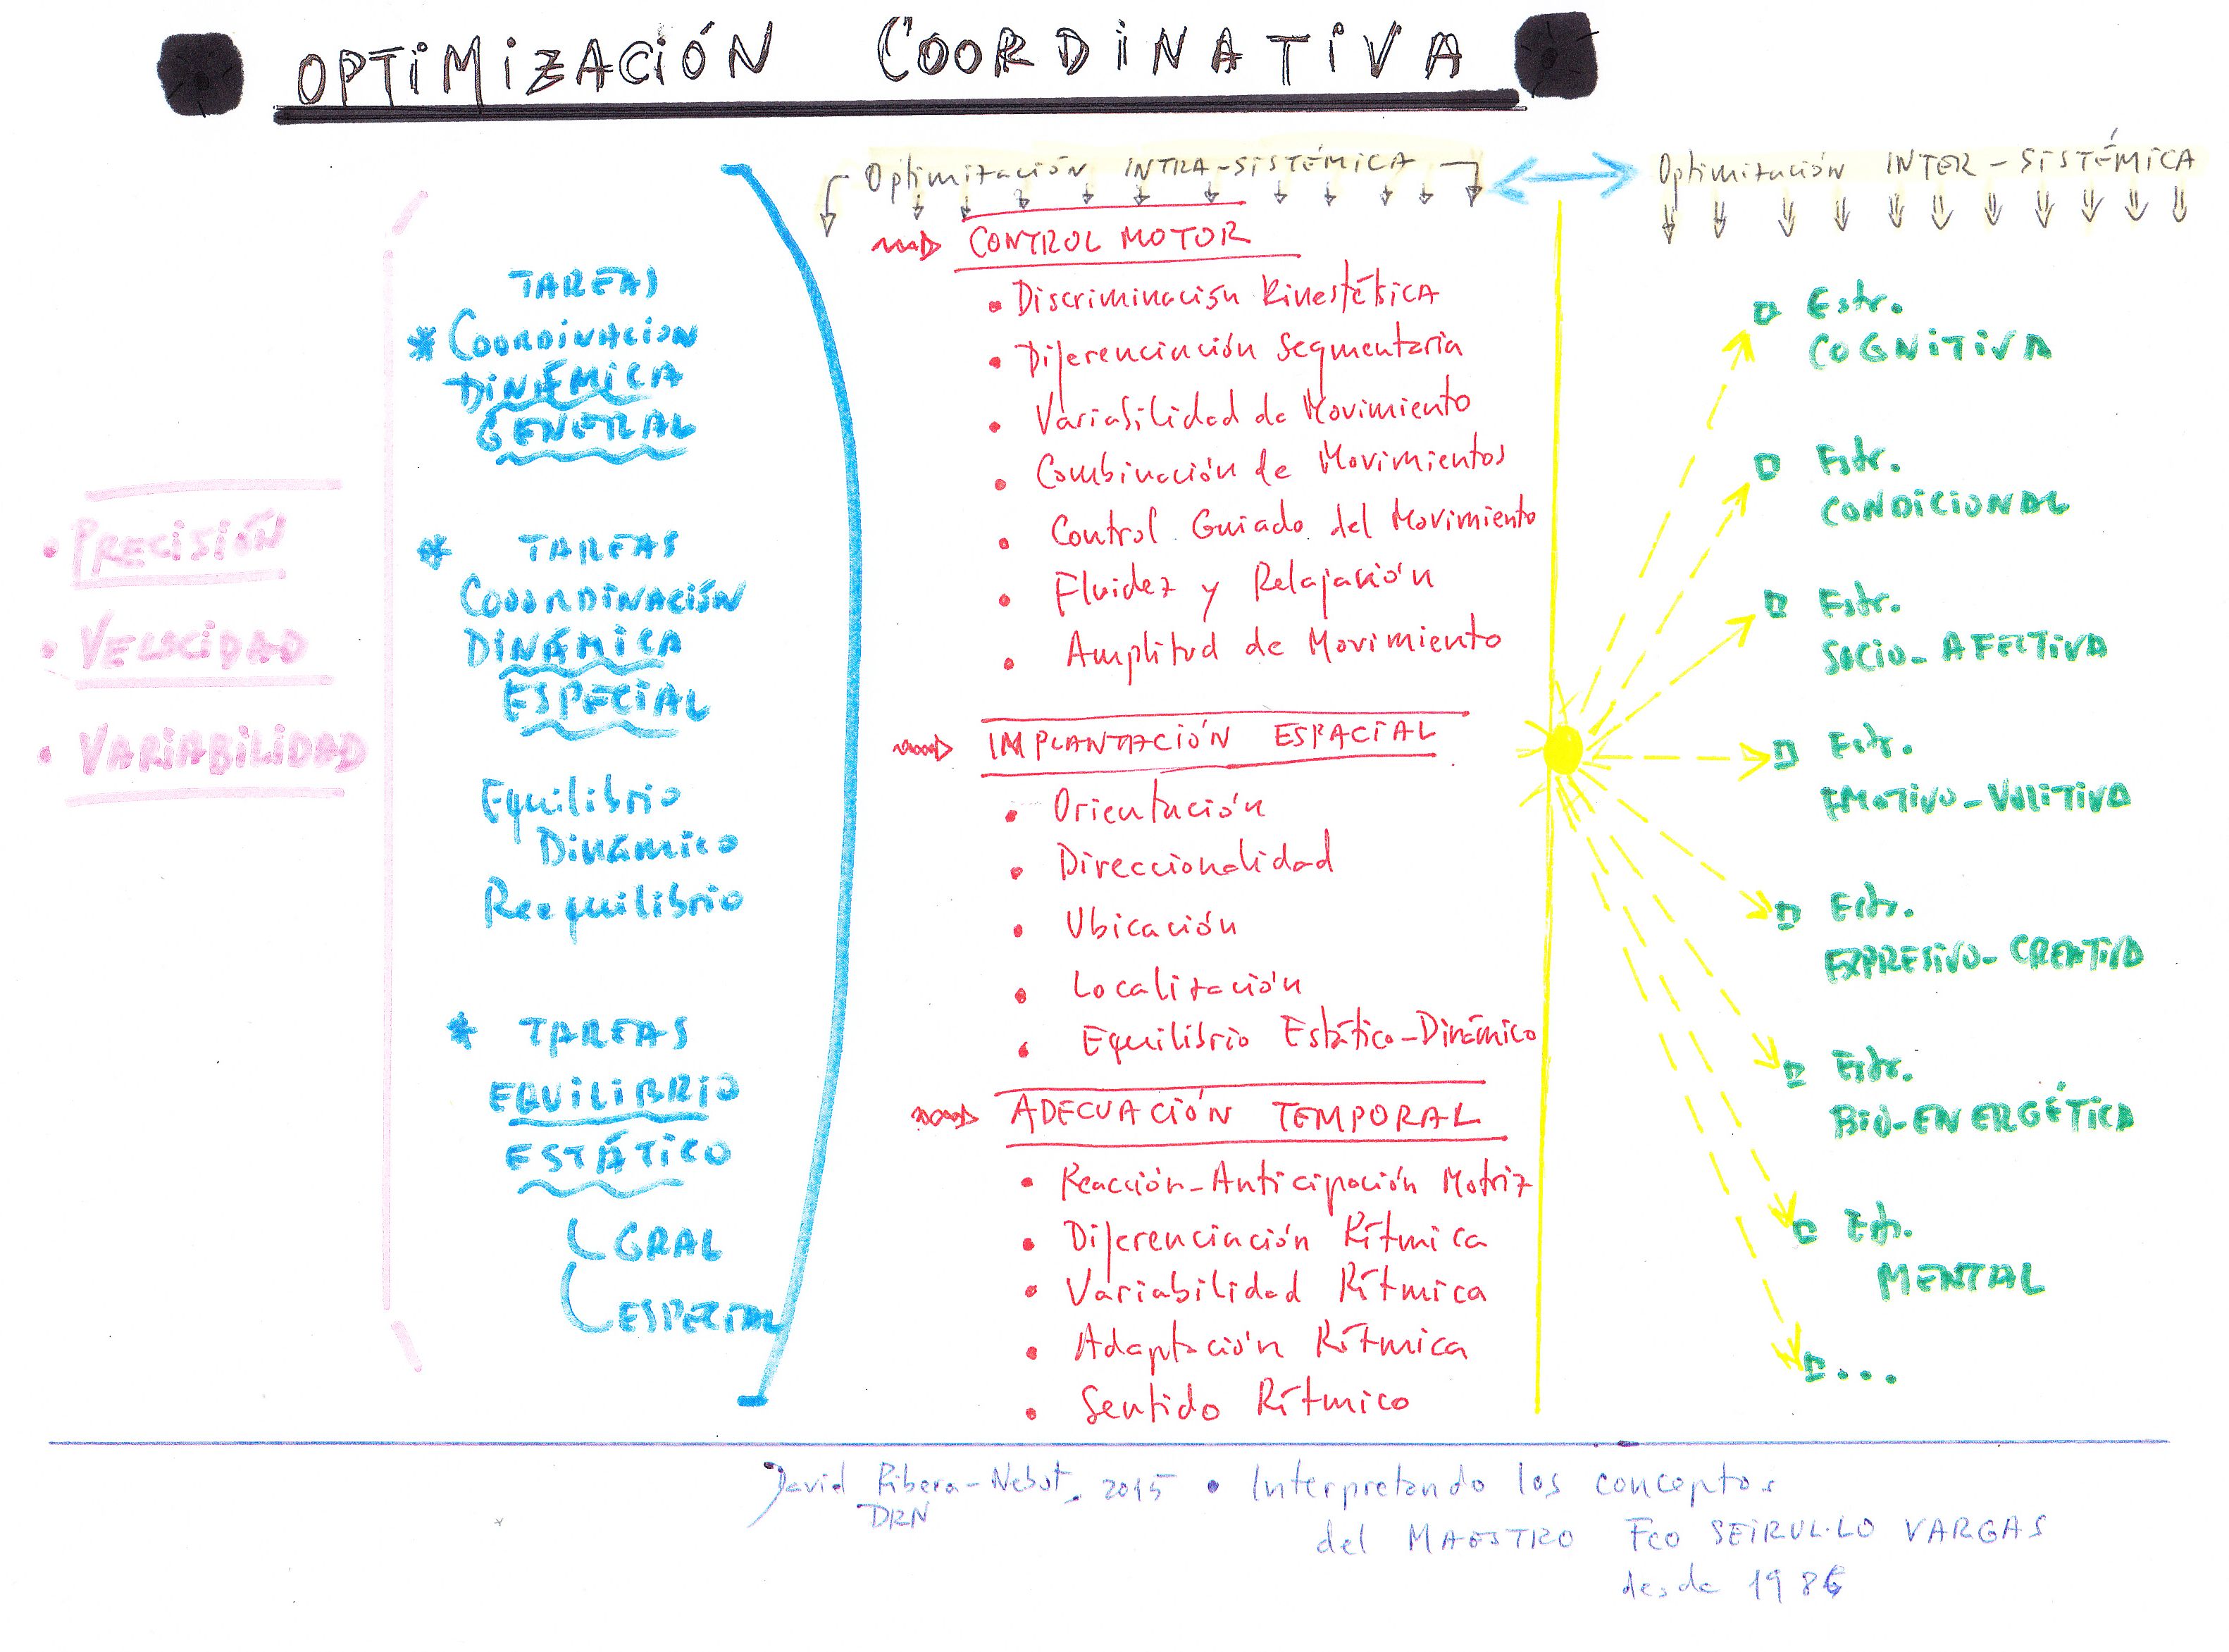 OPTIMIZACIÓN COORDINATIVA
• PRECISIÓN
• VELOCIDAD
• VARIABILIDAD
TAREAS
* COORDINACION
DINÁMICA
GENERAL
* TAREAS
COOORDINACIÓN
DINÁMICA
ESPECIAL
Equilibrio
Dinámico
Reequilibrio
* TAREAS
EQUILIBRIO
ESTÁTICO
GRAL
ESPECIAL
Optimización INTRA-SISTÉMICA
CONTROL MOTOR
• Discriminación Kinestésica
• Diferenciación Segmentaria
• Variabilidad de Movimiento
• Combinación de Movimientos
• Control Guiado del Movimiento
• Fluidez y Relajación
• Amplitud de Movimiento
IMPLANTACIÓN ESPACIAL
• Orientación
• Direccionalidad
• Ubicación
• Localización
• Equilibrio Estático-Dinámico
ADECUACIÓN TEMPORAL
• Reacción-Anticipación Motriz
• Diferenciación Rítmica
• Variabilidad Rítmica
• Adaptación Rítmica
• Sentido Rítmico
Optimización INTER-SISTÉMICA
Estr.
COGNITIVA
Estr.
CONDICIONAL
Estr.
SOCIO-AFECTIVA
Estr.
EMOTIVO-VOLITIVA
Estr.
EXPRESIVO-CREATIVA
Estr.
BIO-ENERGÉTICA
Estr.
MENTAL
...
David Ribera-Nebot, 2015 • Interpretando los conceptos
DRN
del MAESTRO Fco SEIRUL·LO VARGAS
desde 1986